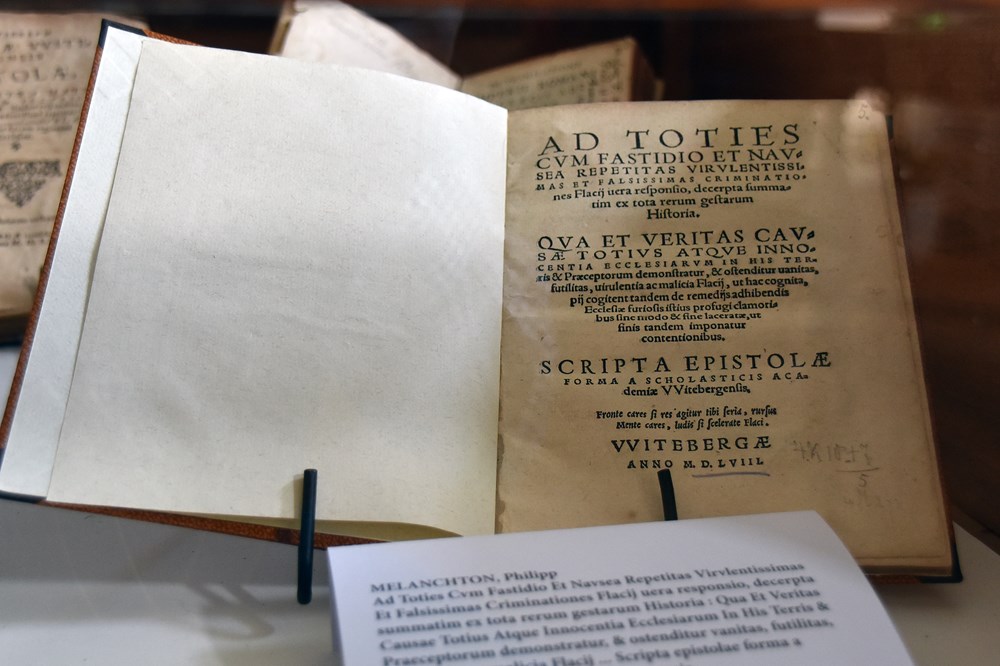 TOLA.
5.
AD TOTIES
CVM FASTIDIO ET NAV-
SEA REPETITAS VIRVLENTISSI-
MAS ET FALSISSIMAS CRIMINATIO-
nes Flacij uera responsio, decerpta summa-
tim ex tota rerum gestarum
Historia.
QVA ET VERITAS CAV-
SÆ TOTIVS ATQVE INNO-
CENTIA ECCLESIARVM IN HIS TER-
ris & Præceptorum demonstratur, & ostenditur uanitas,
futilitas, uirulentia ac malicia Flacij, ut hac cognita,
pij cogitent tandem de remedijs adhibendis
Ecclesiæ furiosis istius profugi clamori-
bus sine modo & fine laceratæ, ut
finis tandem imponatur
contentionibus.
SCRIPTA EPISTOLÆ
FORMA A SCHOLASTICIS ACA-
demiæ VVitebergensis.
Fronte cares si res agitur tibi seria, rursus
Mente cares, ludis si scelerate Flaci.
VVITEBERGÆ
ANNO M. D. LVIII.
5
MELANCHTON, Philipp
Ad Toties Cvm Fastidio Et Navsea Repetitas Virvlentissimas
Et Falsissimas Criminationes Flacij uera responsio, decerpta
summatim ex tota rerum gestarum Historia : Qua Et Veritas
Causae Totius Atque Innocentia Ecclesiarum In His Terris &
Praeceptorum demonstratur, & ostenditur vanitas, futilitas,
malicia Flacij ... Scripta epistolae forma a